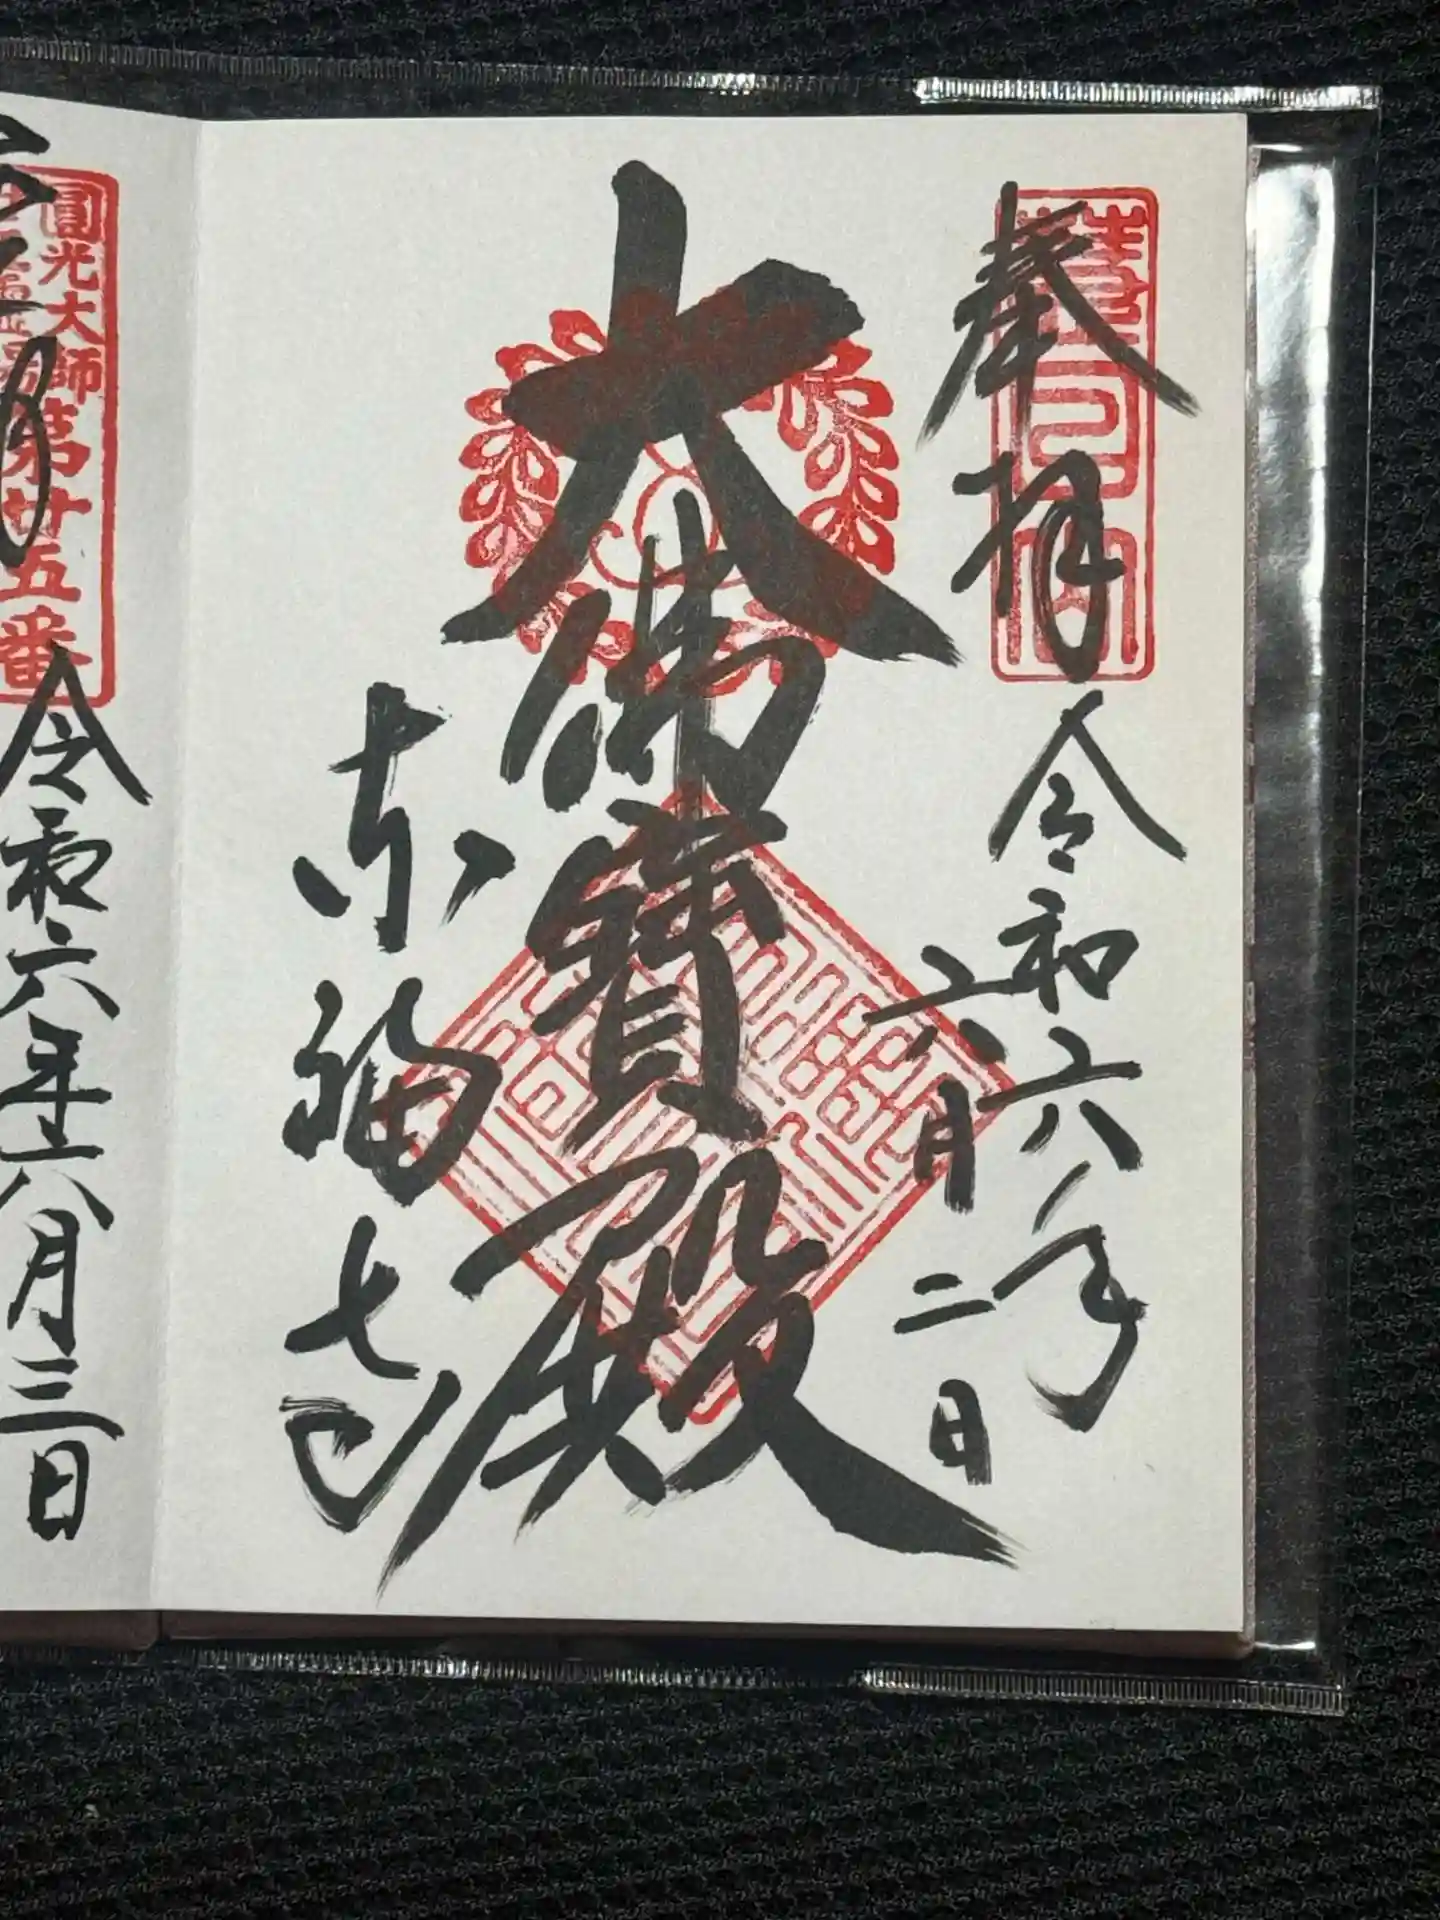 奉拝
令和六年
六月二日
大佛寳殿
東福寺
慧日山
圓光大師第廿五番
令和六年六月三日